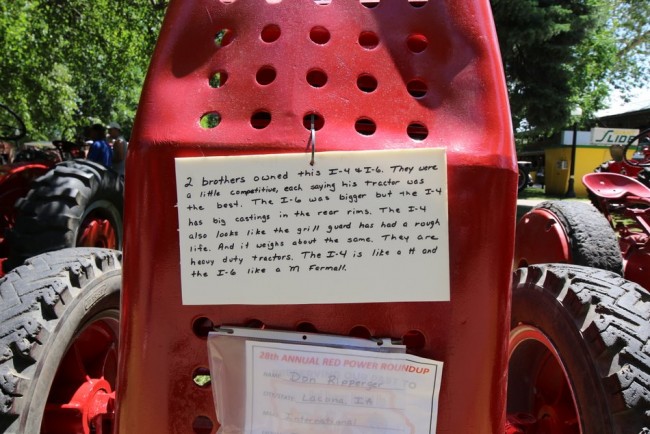 SLIDE
2 brothers owned this I-4 & I-6. They were
a little competitive, each saying his tractor was
the best. The I-6 was bigger but the I-4
has big castings in the rear rims. The I-4
also looks like the grill guard has had a rough
life. And it weighs about the same. They are
heavy duty tractors. The I-4 is like a H and
the I-6 like a M Farmall.
28th ANNUAL RED POWER ROUNDUP
Don Ripperger
Lacona IA
International